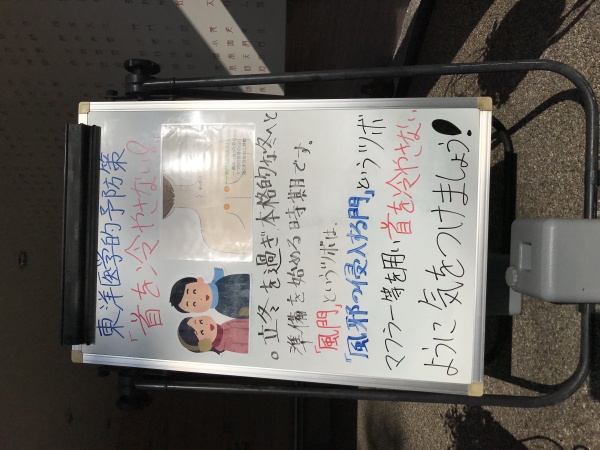 東洋医学的予防策
「首を冷やさない!」
○立冬を過ぎ本格的な冬へと
準備を始める時期です。
「風門」というツボは、
「風邪の侵入する門」というツボ
マフラー等を用い首を冷やさない
ように気をつけましょう!